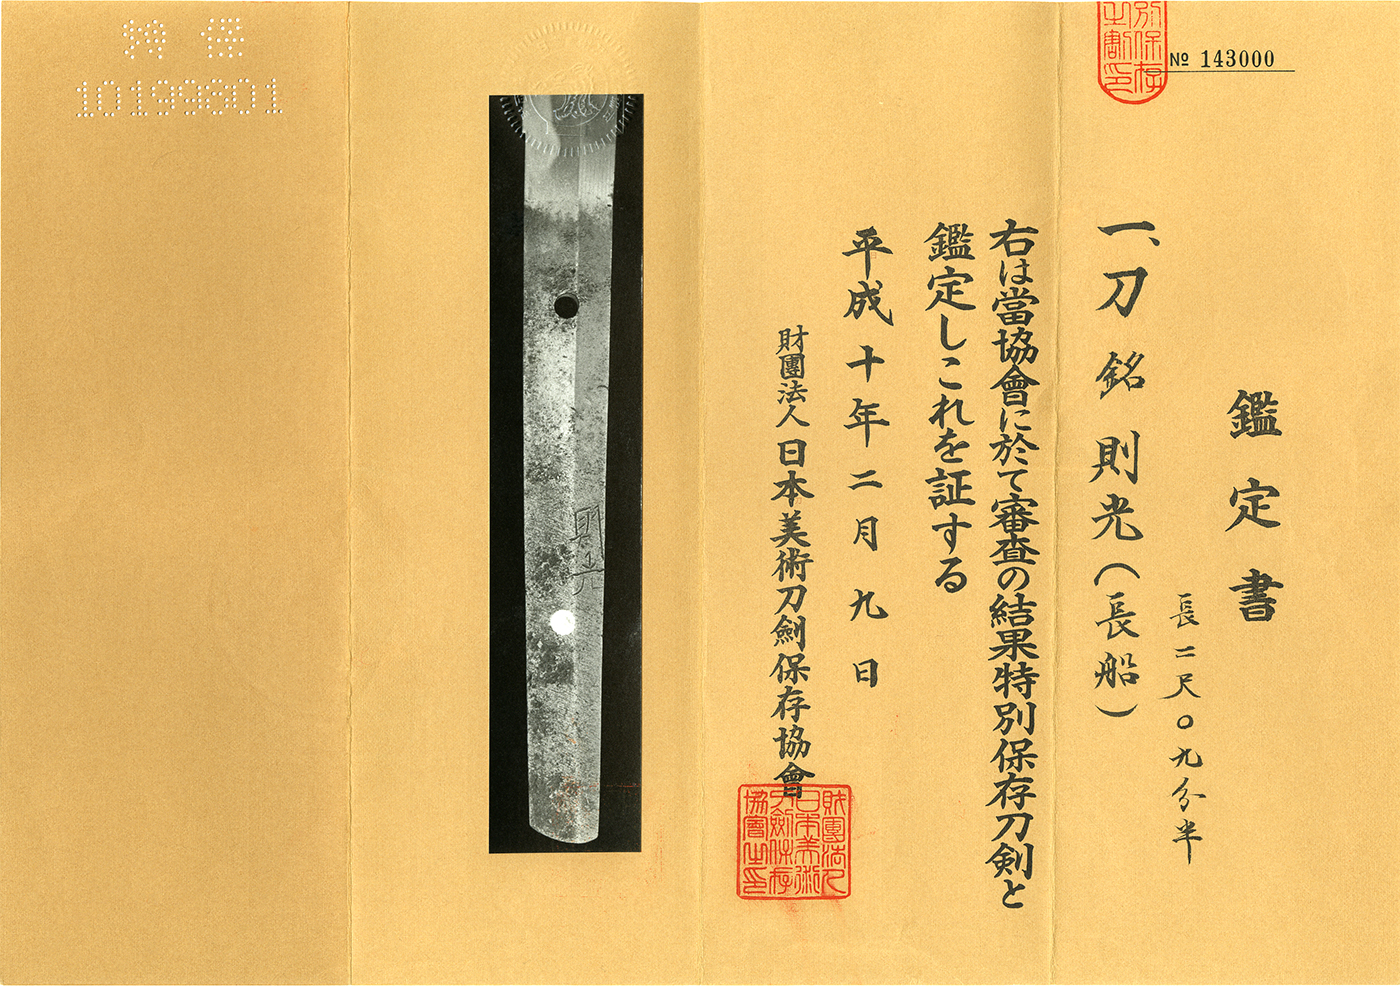 № 143000
鑑定書
長二尺〇九分半
一、刀 銘 則光(長船)
右は當協會に於て審査の結果特別保存刀剣と
鑑定しこれを証する
平成十年二月九日
財團法人日本美術刀劍保存協會
財團法人
日本美術
刀劍保存
協會之印
則光
特保
10199801